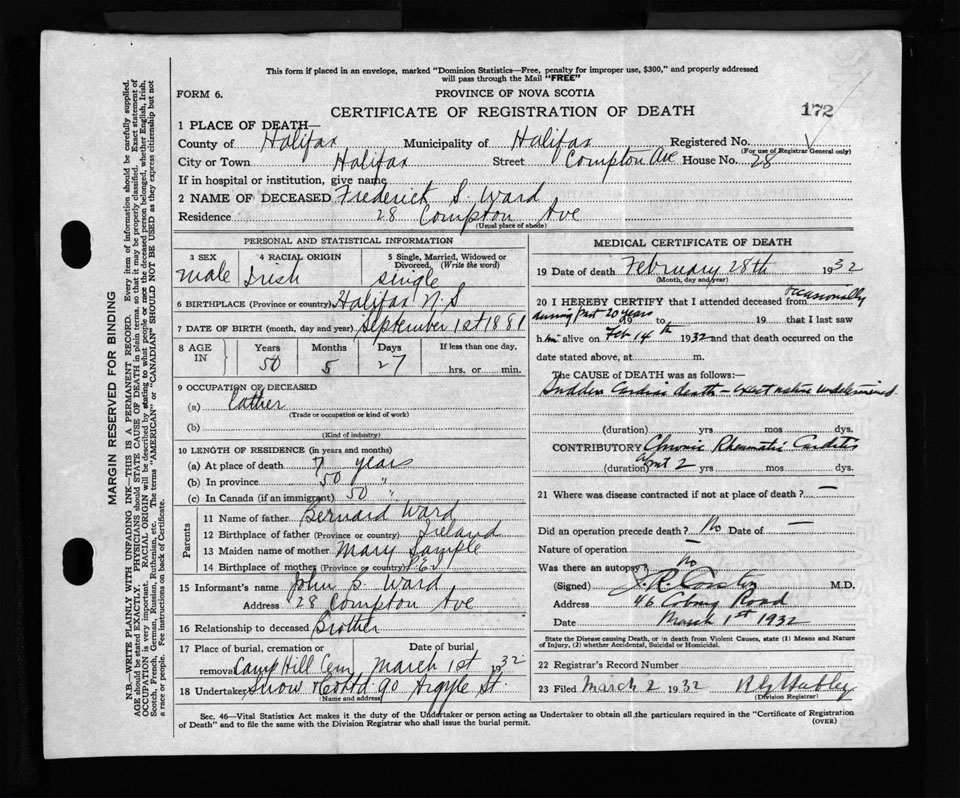 This form if placed in an envelope, marked "Dominion Statistics—Free, penalty for improper use, $300," and properly addressed
will pass through the Mail "FREE"
FORM 6. PROVINCE OF NOVA SCOTIA
CERTIFICATE OF REGISTRATION OF DEATH 172
1 PLACE OF DEATH—
County of Halifax Municipality of Halifax Registered No.
(For use of Registrar General only)
City or Town Halifax Street Compton Ave House No. 28
If in hospital or institution, give name
2 NAME OF DECEASED Frederick S. Ward
Residence 28 Compton Ave
(Usual place of abode)
PERSONAL AND STATISTICAL INFORMATION
3 SEX 4 RACIAL ORIGIN 5 Single, Married, Widowed or
Divorced (Write the word)
male Irish single
6 BIRTHPLACE (Province or country) Halifax N.S
7 DATE OF BIRTH (month, day and year) September 1st 1881
8 AGE IN Years Months Days If less than one day,
50 5 27 hrs. or min.
9 OCCUPATION OF DECEASED
(a) Lather
(Trade or occupation or kind of work)
(b)
(Kind of industry)
10 LENGTH OF RESIDENCE (in years and months)
(a) At place of death 7 years
(b) In province 50 "
(c) In Canada (if an immigrant) 50 "
Parents
11 Name of father Bernard Ward
12 Birthplace of father (Province or country) Ireland
13 Maiden name of mother Mary Sample
14 Birthplace of mother (Province or country) P.E.I
15 Informant's name John S. Ward
Address 28 Compton Ave
16 Relationship to deceased Brother
17 Place of burial, cremation or Date of burial
removal Camp Hill Cem March 1st 1932
18 Undertaker Snow & Co Ltd 90 Argyle St.
(Name and address)
MEDICAL CERTIFICATE OF DEATH
19 Date of death February 28th 1932
(Month, day and year)
20 I HEREBY CERTIFY that I attended deceased from occasionally
during past 20 years 19 to 19 that I last saw
him alive on Feb 14th 1932 and that death occurred on the
date stated above, at m.
The CAUSE of DEATH was as follows:—
Sudden Cardiac death – exact nature undetermined.
(duration) yrs mos days
CONTRIBUTORY Chronic Rheumatic Carditis
(duration) about 2 yrs mos days
21 Where was disease contracted if not at place of death? —
Did an operation precede death? No Date of —
Nature of operation —
Was there an autopsy? No
(Signed) M.D.
Address 46 Coburg Road
Date March 1st 1932
State the Disease causing Death, or in death from Violent Causes, state (1) Means and Nature
of Injury, (2) whether Accidental, Suicidal or Homicidal.
22 Registrar's Record Number
23 Filed March 2 1932
(Division Registrar)
Sec. 46—Vital Statistics Act makes it the duty of the Undertaker or person acting as Undertaker to obtain all the particulars required in the "Certificate of Registration
of Death" and to file the same with the Division Registrar who shall issue the burial permit. (OVER)
MARGIN RESERVED FOR BINDING
N.B.—WRITE PLAINLY WITH UNFADING INK—THIS IS A PERMANENT RECORD. Every item of information should be carefully supplied.
AGE should be stated EXACTLY. PHYSICIANS should STATE CAUSE OF DEATH in plain terms, so that it may be properly classified. Exact statement of
OCCUPATION is very important. RACIAL ORIGIN will be described by stating to what people or race the deceased person belonged, whether English, Irish,
Scotch, French, German, Russian, Ruthenian, etc. The terms "AMERICAN" or "CANADIAN" SHOULD NOT BE USED as they express citizenship but not
a race or people. Fee instructions on back of Certificate.